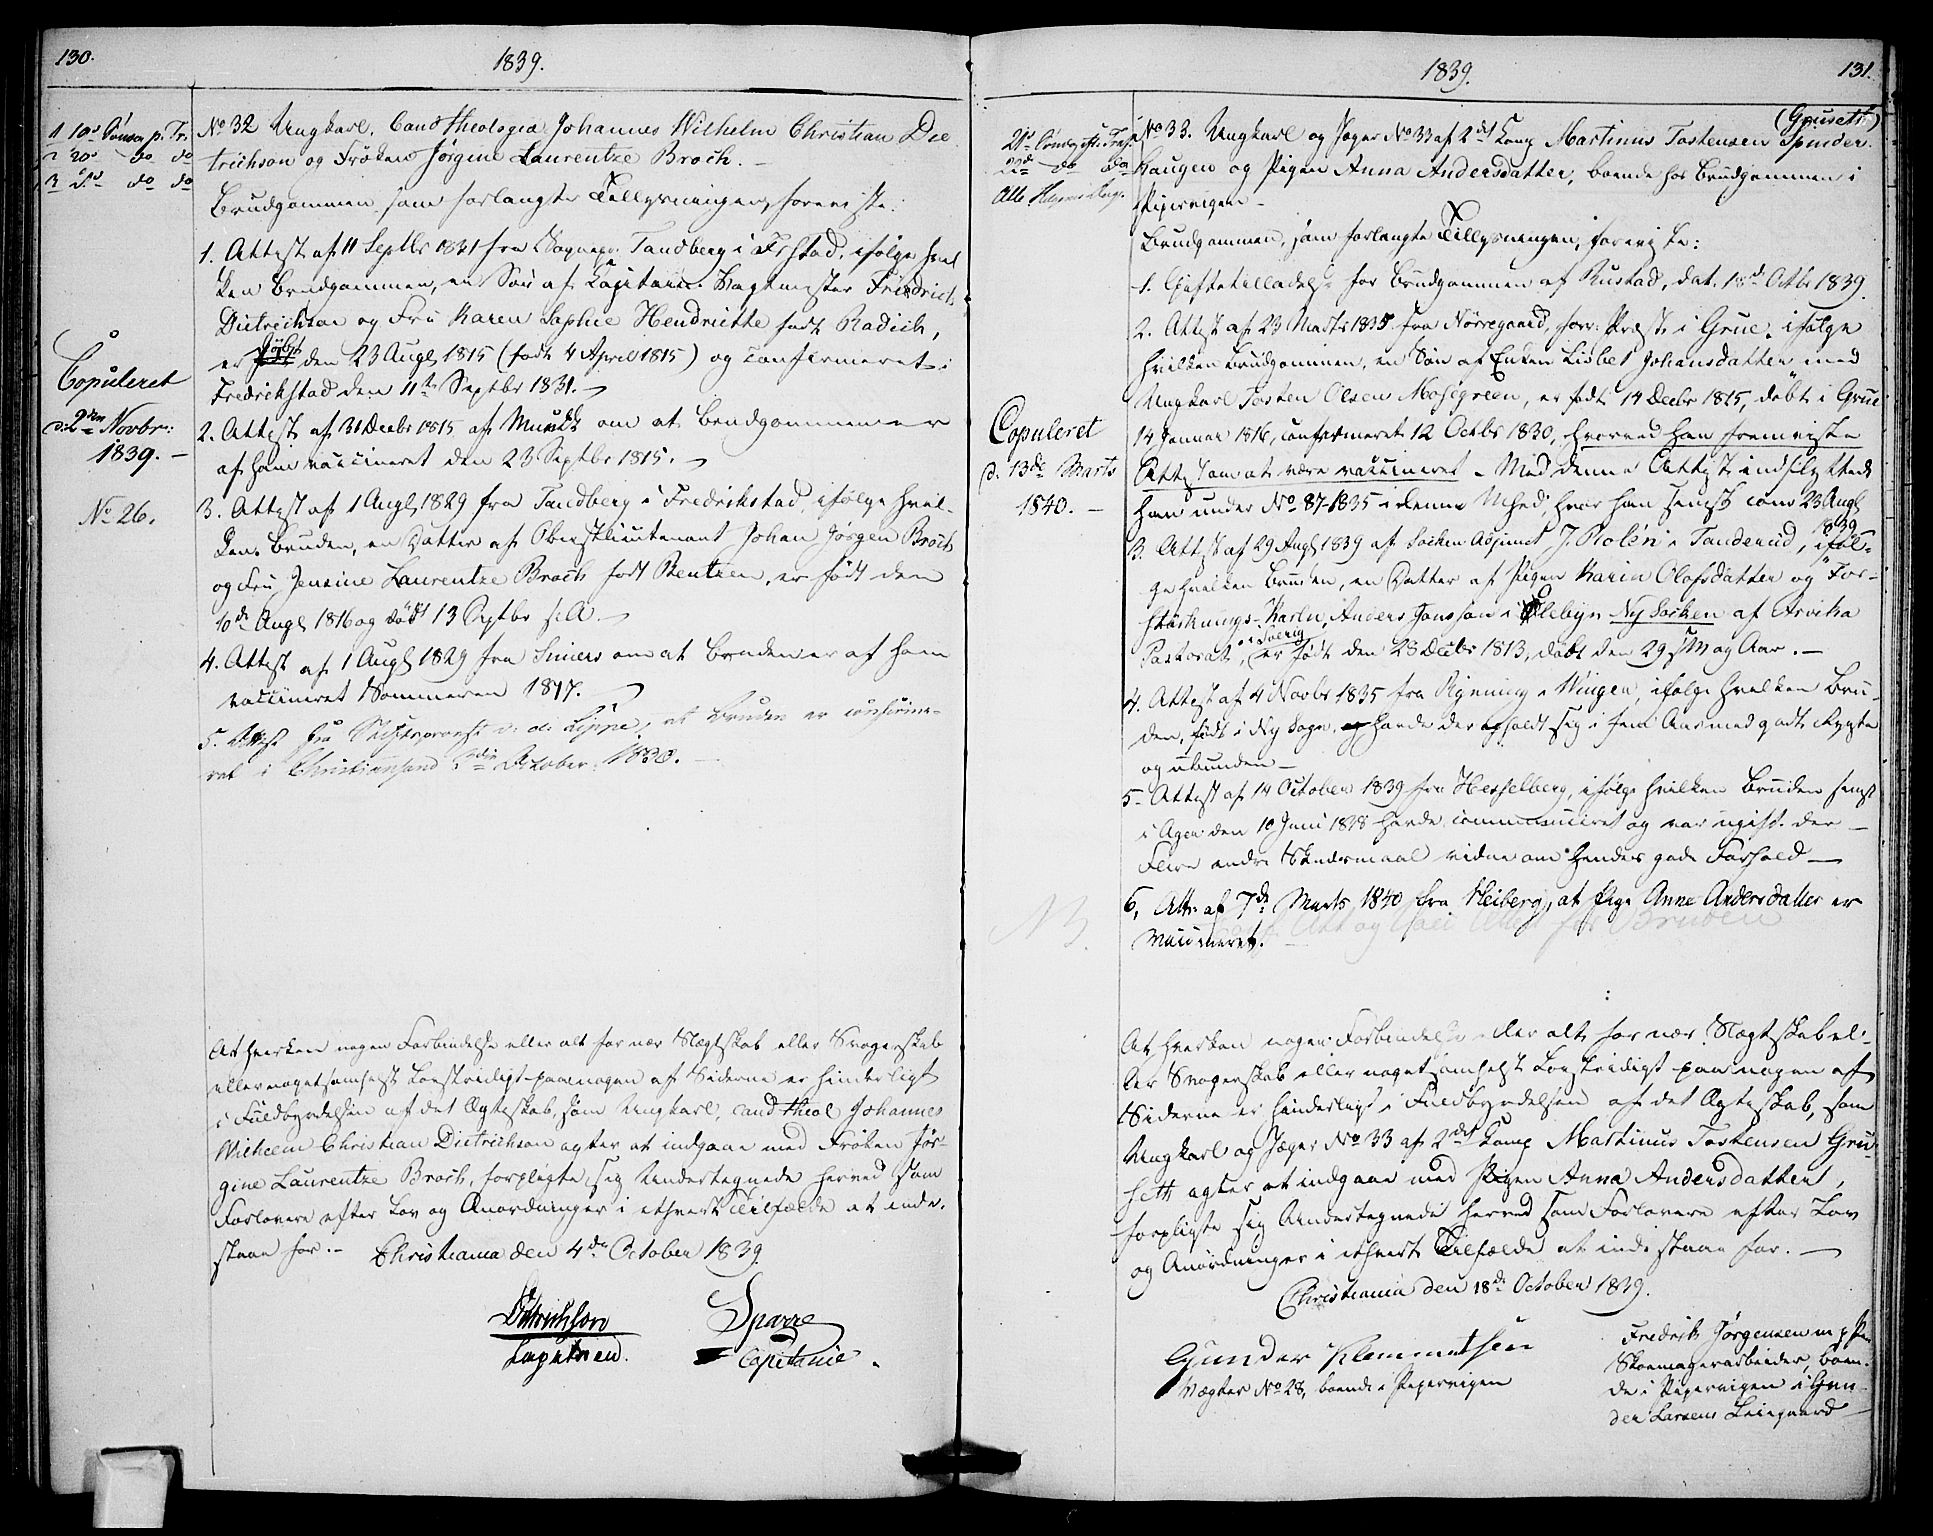 130.
1839.
1 19de Sönd. p. Tr.
2 20de do do
3 21de do do
Copuleret
d: 2den Novbr:
1839. –
No 26.
No 32 Ungkarl, Cand theologia Johannes Wilhelm Christian Die
trichson og Frøken Jørgine Laurentze Broch. –
Brudgommen, som forlangte Tillysningen, foreviste:
1. Attest af 11 Septbr 1831 fra Sognepr. Tandberg i Frstad, ifølge hvil
ken Brudgommen, en Søn af Capitain Vagtmester Friedrich
Dietrichson og Fru Karen Sophie Hendriette født Radich,
er døbt den 23 Augs 1815 (født 4 April 1815) og confirmeret i
Fredrikstad den 11te Septbr 1831. –
2. Attest af 31 Decbr 1815 af Munk om at Brudgommen er
af ham vaccineret den 23 Septbr 1815. –
3. Attest af 1 Augs 1829 fra Tandberg i Fredrikstad, ifølge hvil-
ken Bruden, en Datter af Oberstlieutenant Johan Jørgen Broch
og Fru Jensine Laurentze Broch født Bentzen, er født den
10de Augs 1816 og døbt 13 Septbr s: A. –
4. Attest af 1 Augs 1829 fra Siners om at Bruden er af ham
vaccineret Sommeren 1817. –
5. Attest fra Stiftsprovst v. d. Lippe, at Bruden er confirme-
ret i Christiansand 3die October 1830. –
At hverken nogen Forbindelse eller alt for nær Slægtskab eller Svogerskab
eller noget somhelst Lovstridigt paa nogen af Siderne er hinderligt
i Fuldbyrdelsen af det Ægteskab, som Ungkarl, cand theol Johannes
Wilhelm Christian Dietrichson agter at indgaae med Frøken Jør-
gine Laurentze Broch, forpligte sig Undertegnede herved som
Forlovere efter Lov og Anordninger i ethvert Tilfælde at inde-
staae for. – Christiania den 4de October 1839.
Dietrichson
Capitain
Sparre
Capitaine.
1839.
131.
21de Sönd. p. Tr.
22de do do
Alle Helgens Dag.
Copuleret
d. 13de Marts
1840. –
NB.
(Gruseth)
No 33. Ungkarl og Jæger No 33 af 2det Comp Martinus Tostensen Spinder-
haugen og Pigen Anna Andersdatter, boende hos Brudgommen i
Pipervigen –
Brudgommen, som forlangte Tillysningen, foreviste:
1. Giftetilladelse for Brudgommen af Rustad, dat. 18de Octbr 1839.
2. Attest af 23 Marts 1835 fra Nörregaard, forr. Præst i Grue, ifølge
hvilken Brudgommen, en Søn af Enken Lisbet Johansdatter med
Ungkarl Tosten Olsen Mosegreen, er født 14 Decbr 1815, døbt i Grue
14 Januar 1816, confirmeret 12 Octbr 1830, hvorved han fremviste
Attest om at være vaccineret – Med denne Attest indflyttede
han under No 87-1835 i denne Mhed, hvor han senest com 23 Augs
1839
3. Attest af 29 Augs 1839 af Socken Adjunct J. Rolén i Tanderud, iføl-
ge hvilken Bruden, en Datter af Pigen Karin Olofsdatter og "For-
stärknings-Karln, Anders Jonsson i Elebyn Ny Socken af Arvika
Pastorat, i Sverig er født den 28 Decbr 1813, døbt den 29 s M og Aar. –
4. Attest af 4 Novbr 1835 fra Ryning i Wingen, ifølge hvilken Bru-
den, født i Ny Sogn, havde der opholdt sig i fem Aar med godt Rygte
og ubunden –
5. Attest af 14 October 1839 fra Hesselberg, ifølge hvilken Bruden senest
i Agen den 10 Juni 1838 havde communiceret og var ugift. der –
Flere andre Skudsmaal vidne om hendes gode Forhold –
6, Att: af 7de Marts 1840 fra Heiberg, at Pige Anne Andersdatter er
vaccineret.
Att og for Bruden
At hverken nogen Forbindelse eller alt for nær Slægtskab el-
ler Svogerskab eller noget somhelst Lovstridigt paa nogen af
Siderne er hinderligt i Fuldbyrdelsen af det Ægteskab, som
Ungkarl og Jæger No 33 af 2det Comp Martinus Tostensen Gru-
seth agter at indgaae med Pigen Anna Andersdatter,
forpligte sig Undertegnede herved som Forlovere efter Lov
og Anordninger i ethvert Tilfælde at inde staae for. –
Christiania den 18de October 1839.
Gunder Klemmetsen
Vægter No 28, boende i Pipervigen
Fredrik Jørgensen m p Pen
Skomagerarbeider, boen-
de i Pipervigen i Gun-
der Larsens Leiegaard –